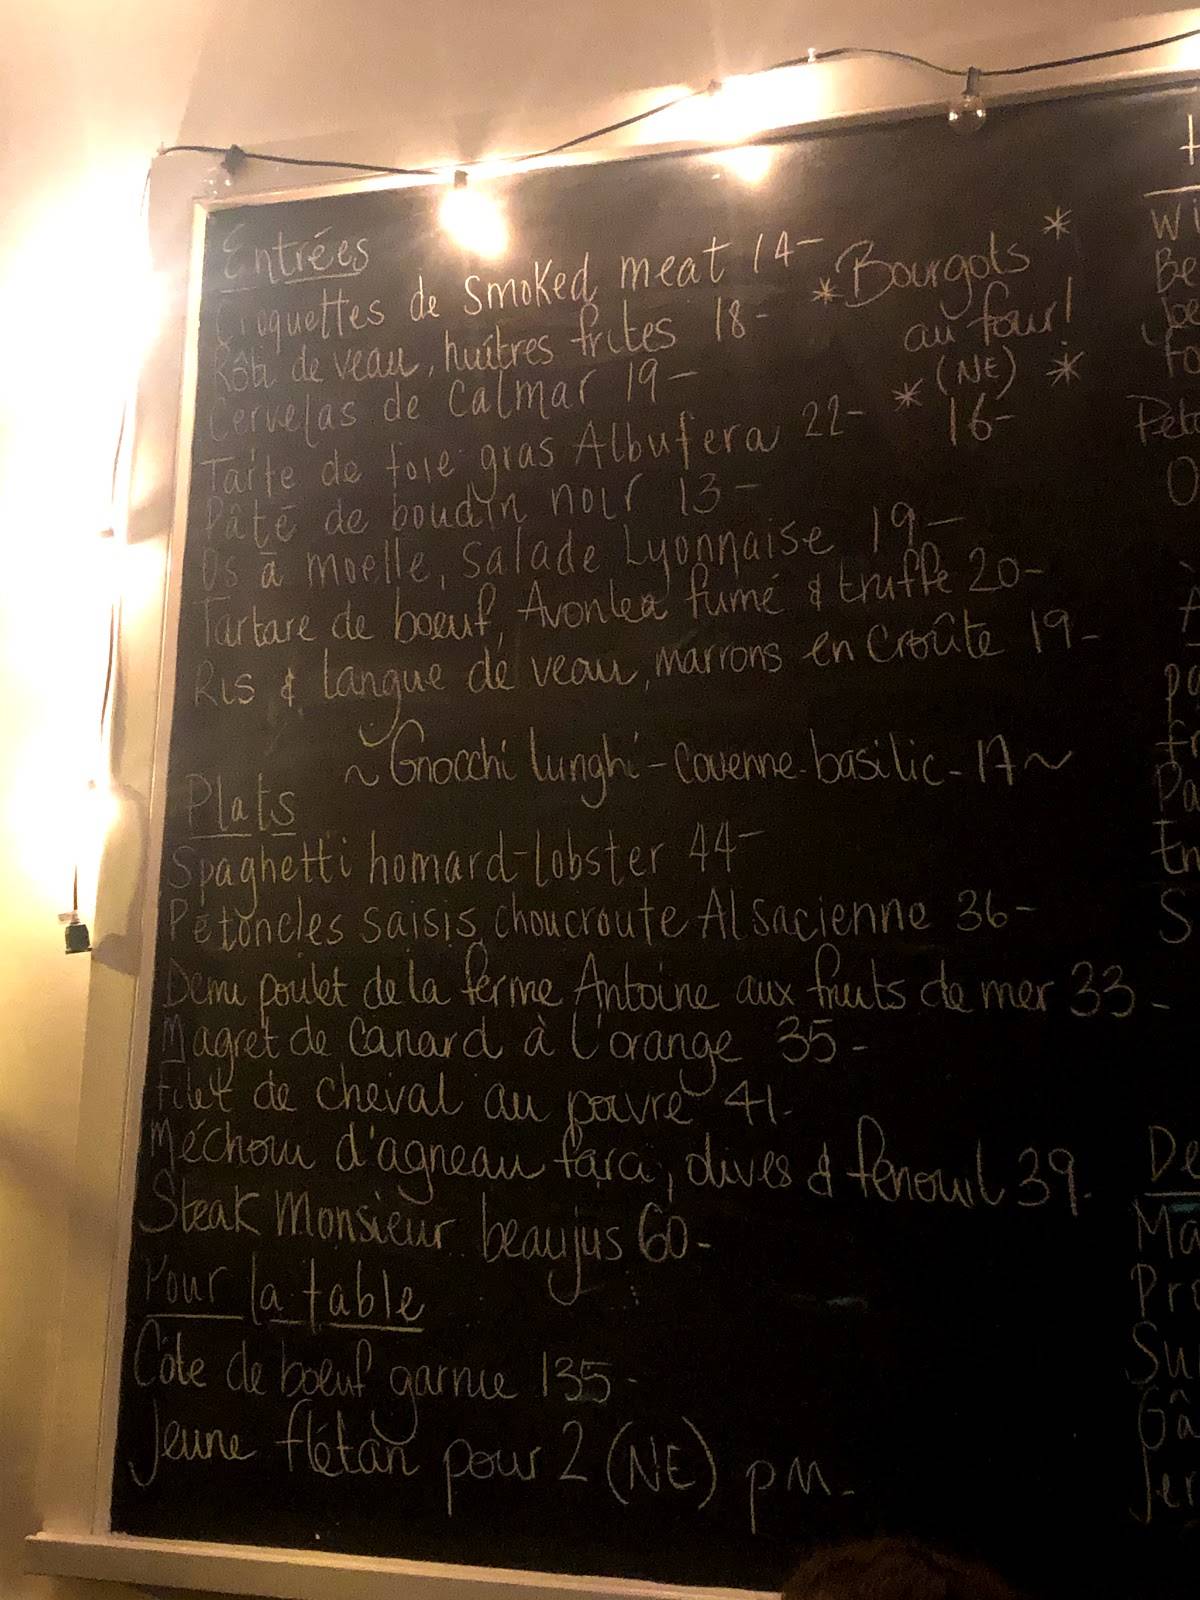 Entrées
Croquettes de Smoked meat 14-
Rôti de veau, huîtres frites 18-
Cervelas de Calmar 19-
Tarte de foie gras Albufera 22-
Pâté de boudin noir 13-
Os à moelle, Salade Lyonnaise 19-
Tartare de boeuf, Avonlea fumé & truffe 20-
Ris & langue de veau, marrons en Croûte 19-
*Bourgots*
au four!
*(NE)*
16-
~Gnocchi lunghi-couenne-basilic-17~
Plats
Spaghetti homard-lobster 44-
Pétoncles saisis, choucroute Alsacienne 36-
Demi poulet de la ferme Antoine aux fruits de mer 33-
Magret de Canard à L'orange 35-
Filet de cheval au poivre 41-
Méchoui d'agneau fara, olives & fenouil 39-
Steak Monsieur beaujus 60-
Pour la table
Côte de boeuf garnie 135-
Jeune flétan pour 2 (NE) pm-
Wi
Be
fo
Pét
O
pa
Pa
En
S
De
Ma
Pro
Su
Gâ
Jer